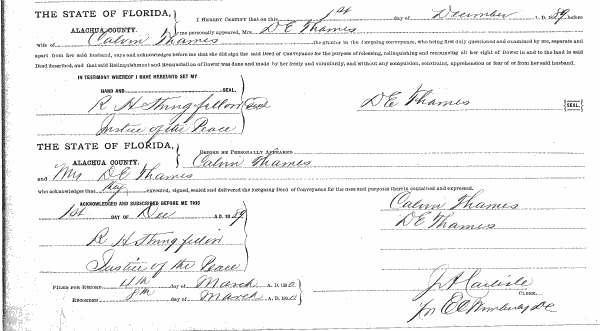 THE STATE OF FLORIDA,
ALACHUA COUNTY.
I HEREBY CERTIFY that on this 1st day of December A. D. 1889, before
me personally appeared, Mrs. D E Thames
wife of Calvin Thames the grantor in the foregoing conveyance, who being first duly questioned and examined by me, separate and
apart from her said husband, says and acknowledges before me that she did sign the said Deed of Conveyance for the purpose of releasing, relinquishing and renouncing all her right of Dower in and to the land in said
Deed described, and that said Relinquishment and Renunciation of Dower was done and made by her freely and voluntarily, and without any compulsion, constraint, apprehension or fear of or from her said husband.
IN TESTIMONY WHEREOF I HAVE HEREUNTO SET MY
HAND AND SEAL.
R H Stringfellow Seal D E Thames {SEAL.}
Justice of the Peace
THE STATE OF FLORIDA,
ALACHUA COUNTY.
BEFORE ME PERSONALLY APPEARED
Calvin Thames
and Mrs D E Thames
who acknowledges that they executed, signed, sealed and delivered the foregoing Deed of Conveyance for the uses and purposes therein contained and expressed.
ACKNOWLEDGED AND SUBSCRIBED BEFORE ME THIS
1st DAY OF Dec A. D. 1889
Calvin Thames
D E Thames
R H Stringfellow
Justice of the Peace
FILED FOR RECORD 4th day of March A. D. 1890
RECORDED 8th day of March A. D. 1890
J A Carlisle
CLERK.
pr E C